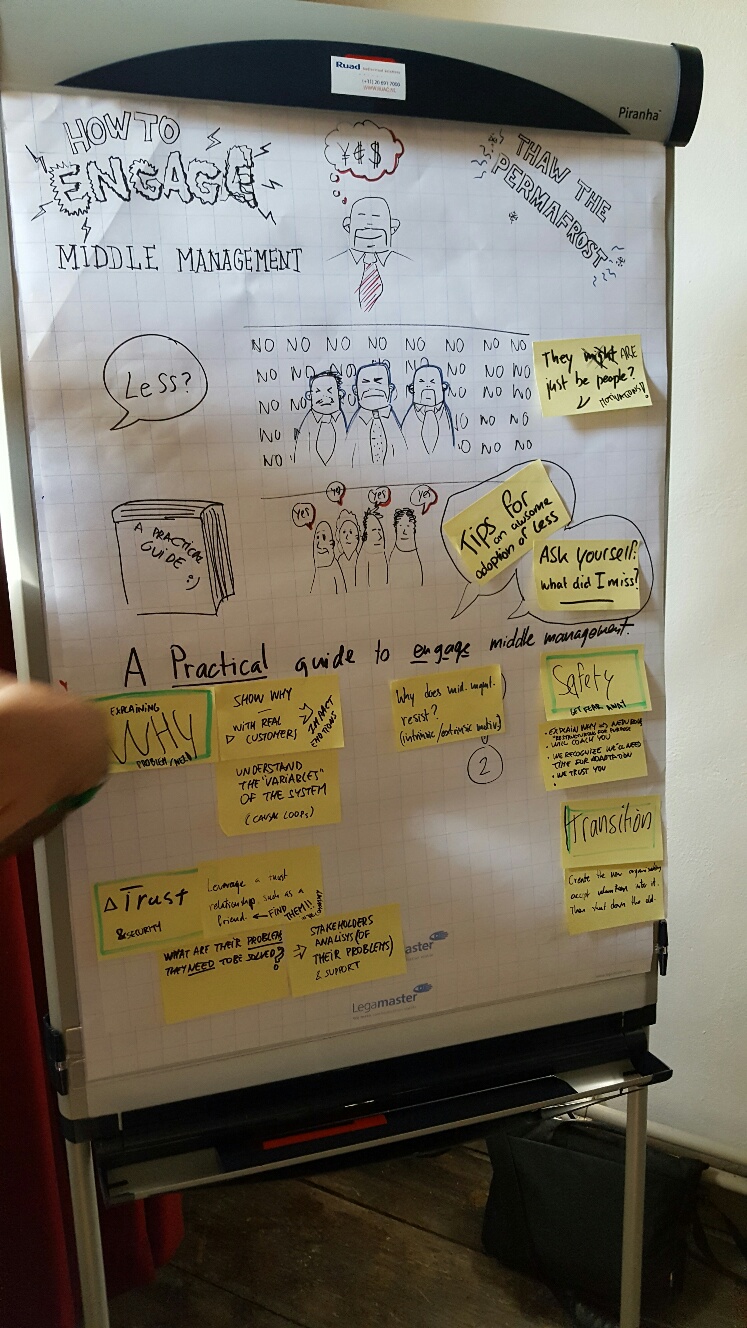 Ruad
WWW.RUAD.NL
Piranha
HOW TO
ENGAGE
MIDDLE MANAGEMENT
¥ € $
THAW THE
PERMAFROST
Less?
NO NO NO NO NO NO NO NO
NO NO NO NO NO NO NO
NO NO NO NO NO
NO NO NO NO
NO
They might ARE
just be people?
MOTIVATIONS!
A PRACTICAL
GUIDE :)
Yes
yo
yes
yes
Tips for
an awsome
adoption of Less
Ask yourself:
what did I miss?
A Practical guide to engage middle management.
EXPLAINING
WHY
PROBLEM/NEED
SHOW WHY
WITH REAL
CUSTOMERS
IMPACT
EMOTIONS
UNDERSTAND
THE "VARIABLES"
OF THE SYSTEM
(CAUSAL LOOPS)
Why does mid. mgmt.
resist?
(intrinsic/extrinsic motiv)
2
Safety
LET FEAR AWAY
• EXPLAIN WHY → NEW BORN
"RESTRUCTURING FOR PURPOSE
• WILL COACH YOU
• WE RECOGNIZE WE'LL NEED
TIME FOR ADAPTATION
• WE TRUST YOU
Transition
Create the new organisation
accept volunteers into it.
Then shut down the old.
Δ Trust
& SECURITY
Leverage a trust
relationship such as a
friend. ← FIND THEM!!
WHAT ARE THEIR PROBLEM
THEY NEED TO BE SOLVED?
⇒ STAKEHOLDERS
ANALISYS (OF
THEIR PROBLEMS)
& SUPPORT
aster
Legamaster